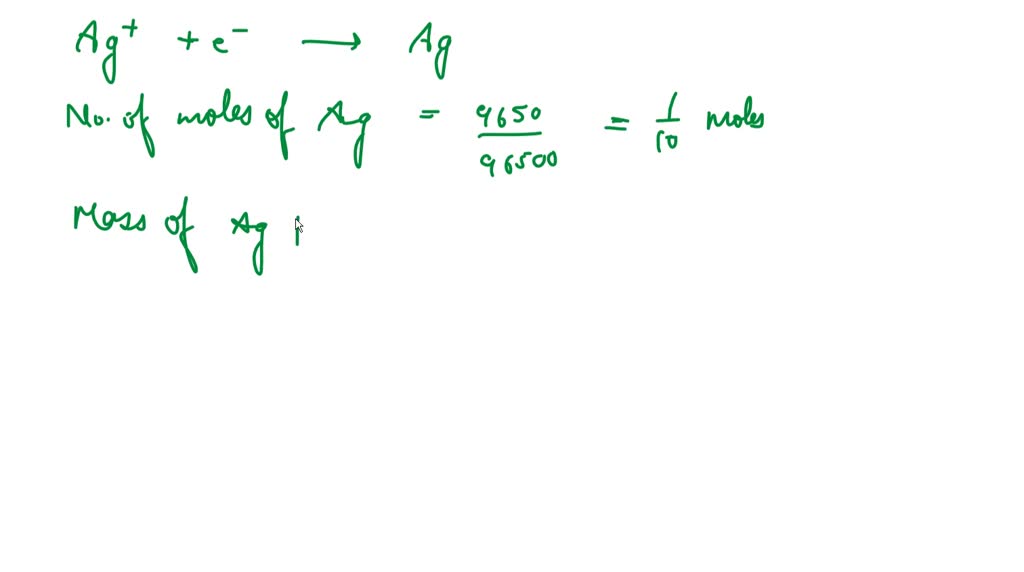 Ag⁺ + e⁻ ⟶ Ag
No. of moles of Ag = 9650/96500 = 1/10 moles
Mass of Ag